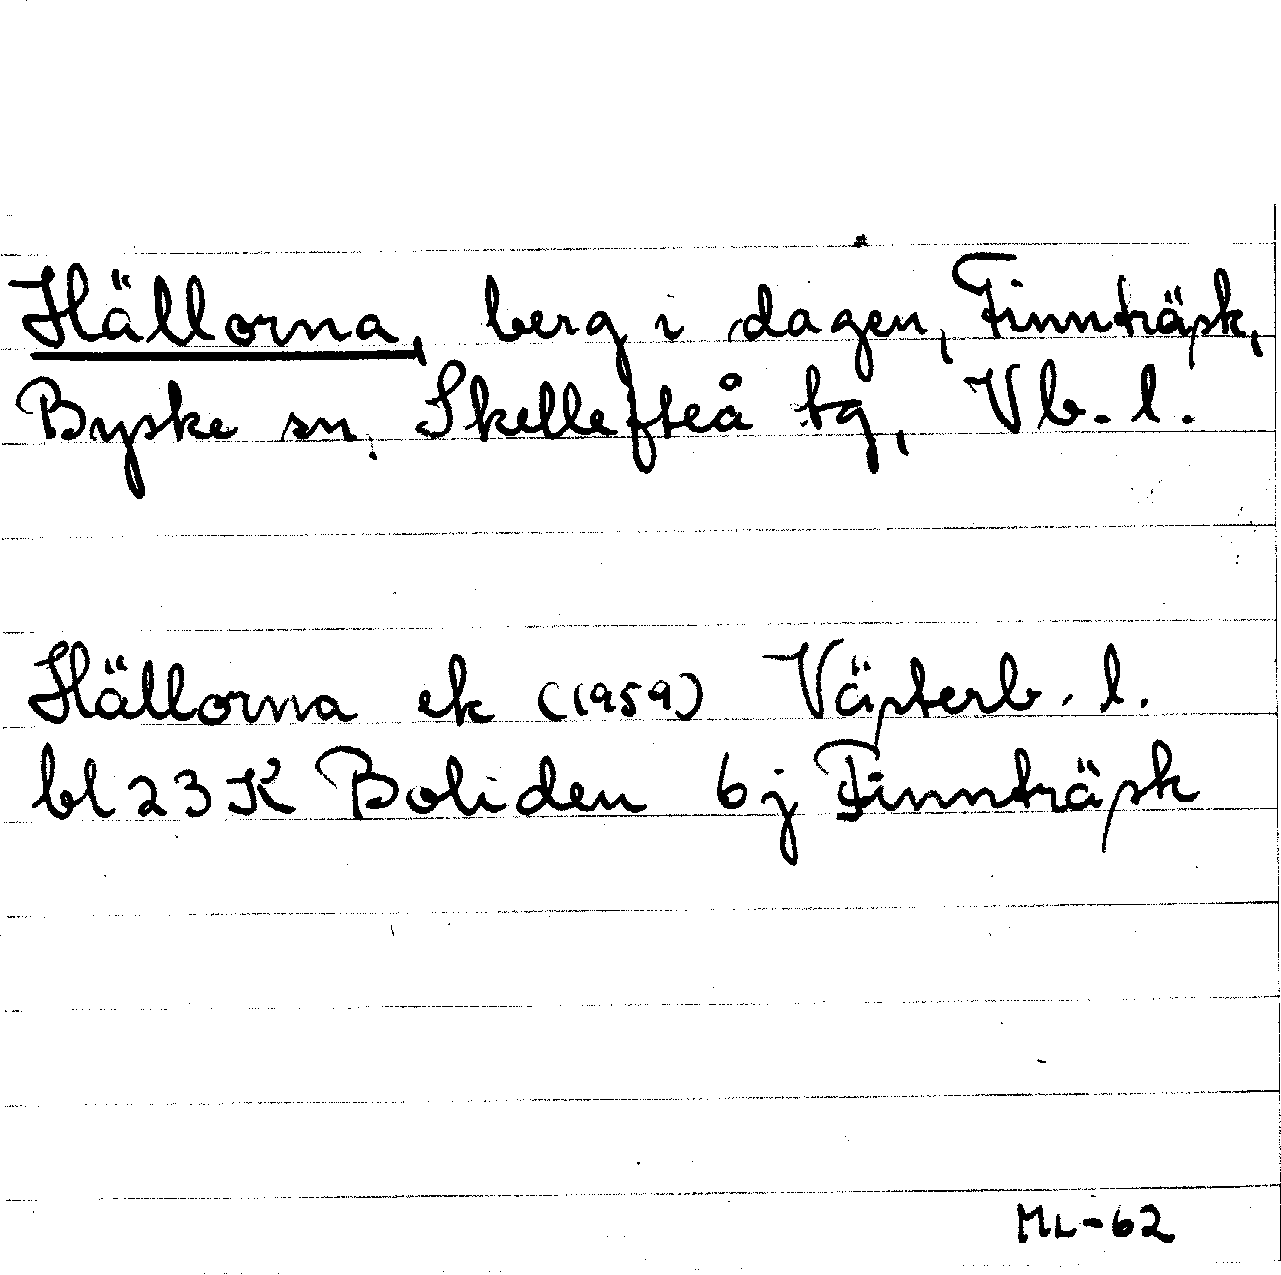 Hällorna, berg i dagen, Finnträsk,
Byske sn, Skellefteå tg, Vb. l.
Hällorna ek (1959) Västerb. l.
bl 23 K Boliden 6j Finnträsk
ML-62